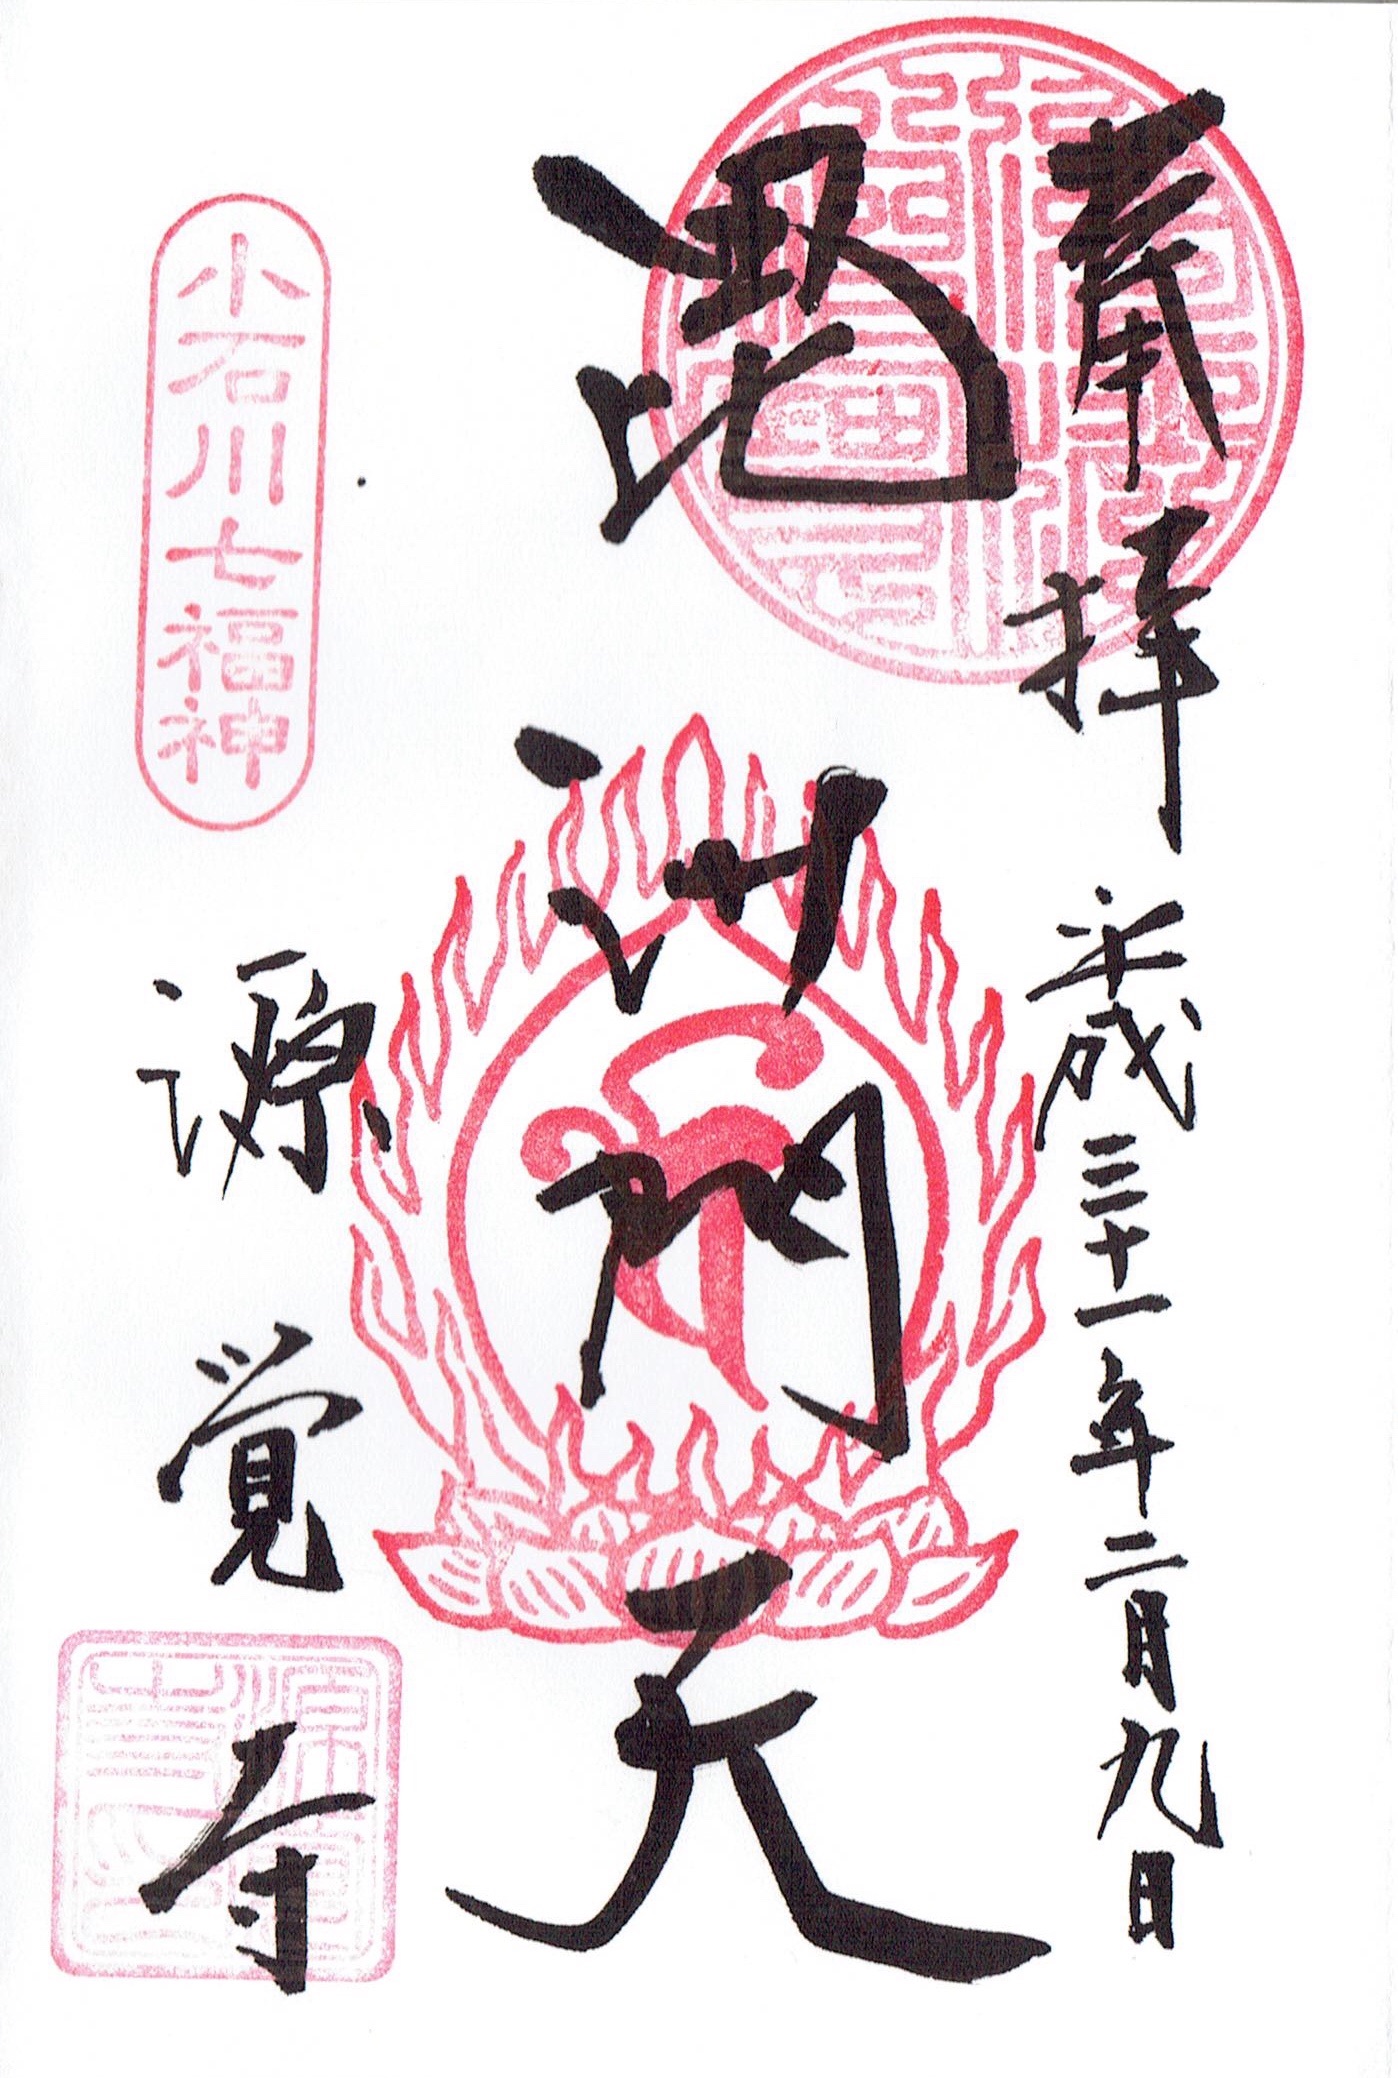 奉拝 平成三十一年二月九日
毘沙門天
源覚寺
小石川七福神